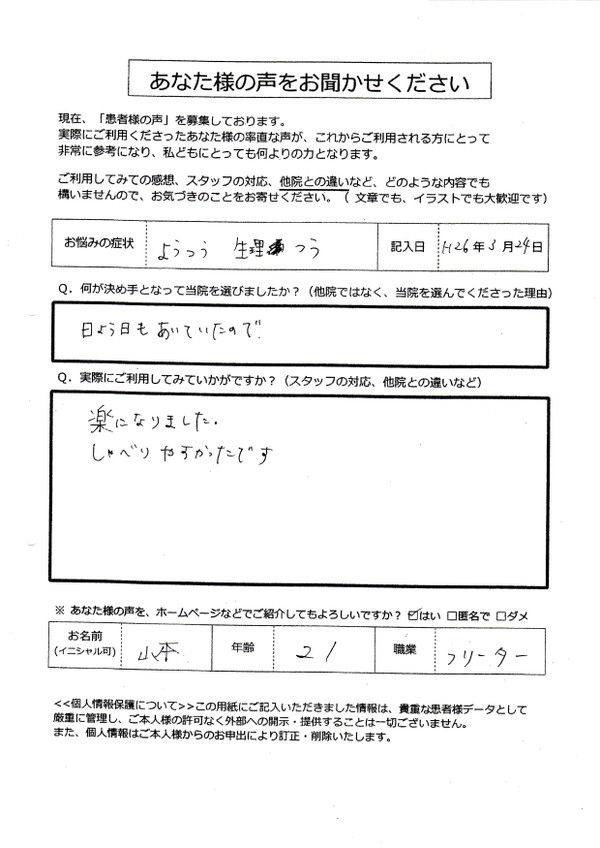 あなた様の声をお聞かせください
現在、「患者様の声」を募集しております。
実際にご利用くださったあなた様の率直な声が、これからご利用される方にとって
非常に参考になり、私どもにとっても何よりの力となります。
ご利用してみての感想、スタッフの対応、他院との違いなど、どのような内容でも
構いませんので、お気づきのことをお寄せください。（ 文章でも、イラストでも大歓迎です）
お悩みの症状 ようつう 生理 つう 記入日 H26年3月24日
Q．何が決め手となって当院を選びましたか？（他院ではなく、当院を選んでくださった理由）
日よう日もあいていたので
Q．実際にご利用してみていかがですか？（スタッフの対応、他院との違いなど）
楽になりました.
しゃべりやすかったです
※ あなた様の声を、ホームページなどでご紹介してもよろしいですか？ ☑はい □匿名で □ダメ
お名前 山本 年齢 21 職業 フリーター
(イニシャル可)
<<個人情報保護について>>この用紙にご記入いただきました情報は、貴重な患者様データとして
厳重に管理し、ご本人様の許可なく外部への開示・提供することは一切ございません。
また、個人情報はご本人様からのお申出により訂正・削除いたします。